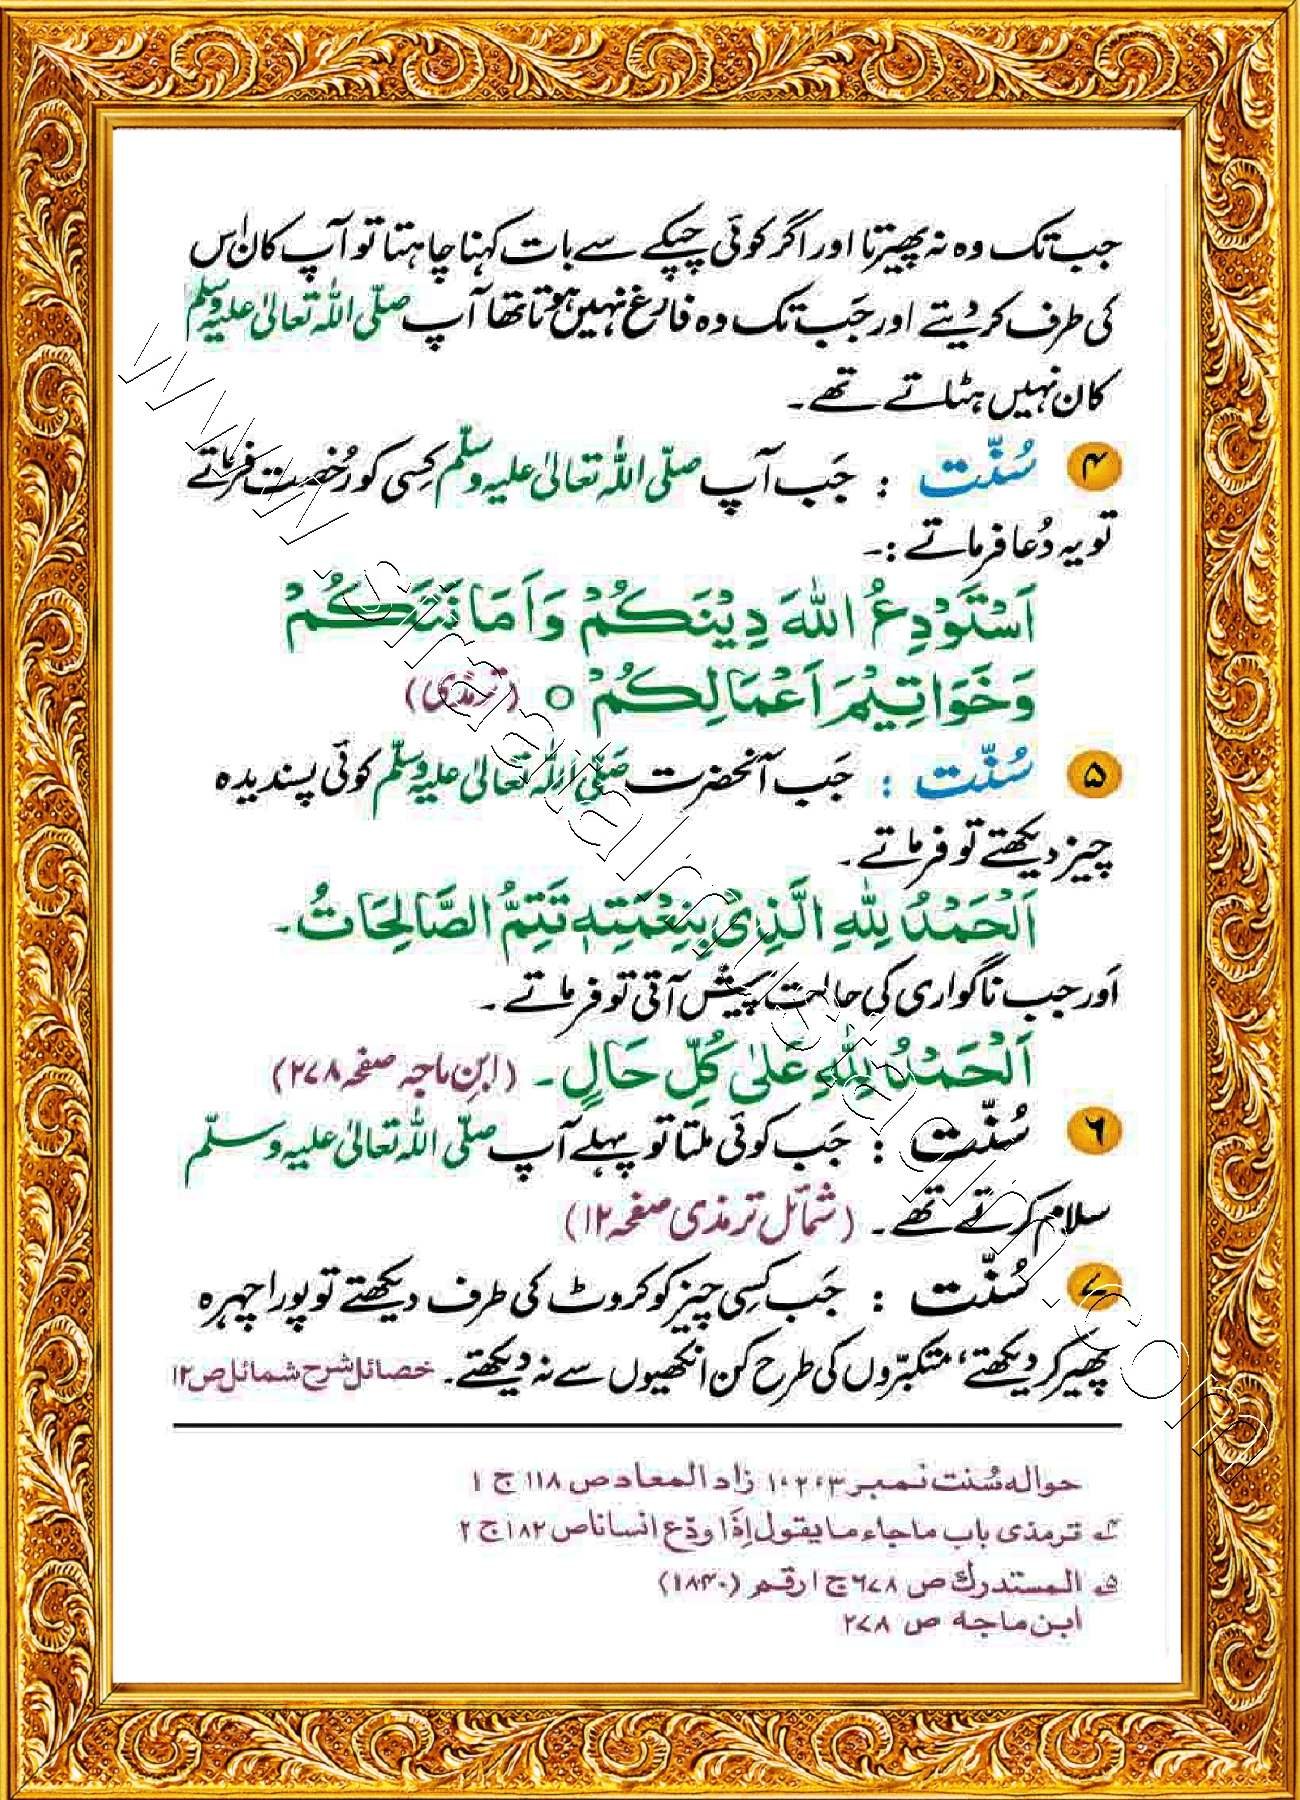 جب تک وہ نہ پھیرتا اور اگر کوئی چپکے سے بات کہنا چاہتا تو آپ کان اس
کی طرف کر دیتے اور جَب تک وہ فارغ نہیں ہوتا تھا آپ صلّی اللّٰہ تعالیٰ علیہ وسلّم
کان نہیں ہٹاتے تھے۔
۴ سُنّت : جَب آپ صلّی اللّٰہ تعالیٰ علیہ وسلّم کِسی کو رُخصت فرماتے
تو یہ دُعا فرماتے :۔
اَسْتَوْدِعُ اللّٰهَ دِيْنَكُمْ وَاَمَانَتَكُمْ
وَخَوَاتِيْمَ اَعْمَالِكُمْ ○ (ترمذی)
۵ سُنّت : جَب آنحضرت صَلّی اللّٰہ تعالیٰ علیہ وسلّم کوئی پسندیدہ
چیز دیکھتے تو فرماتے۔
اَلْحَمْدُ لِلّٰهِ الَّذِىْ بِنِعْمَتِهٖ تَتِمُّ الصَّالِحَاتُ۔
اَور جب ناگواری کی حالت پیش آتی تو فرماتے۔
اَلْحَمْدُ لِلّٰهِ عَلٰى كُلِّ حَالٍ۔ (ابنِ ماجہ صفحہ ۲۷۸)
۶ سُنّت : جَب کوئی ملتا تو پہلے آپ صلّی اللّٰہ تعالیٰ علیہ وسلّم
سلام کرتے تھے۔ (شمائل ترمذی صفحہ ۱۲)
۷ سُنّت : جَب کِسی چیز کو کروٹ کی طرف دیکھتے تو پورا چہرہ
پھیر کر دیکھتے، متکبّروں کی طرح کن انکھیوں سے نہ دیکھتے۔ خصائل شرح شمائل ص ۱۲
حوالہ سُنت نمبر ۱،۲،۳ زاد المعاد ص ۱۱۸ ج ۱
۴ ترمذی باب ماجاء مایقول اِذَا ودّع انسانا ص ۱۸۲ ج ۲
۵ المستدرك ص ۶۷۸ ج ۱ رقم (۱۸۴۰)
ابن ماجہ ص ۲۷۸